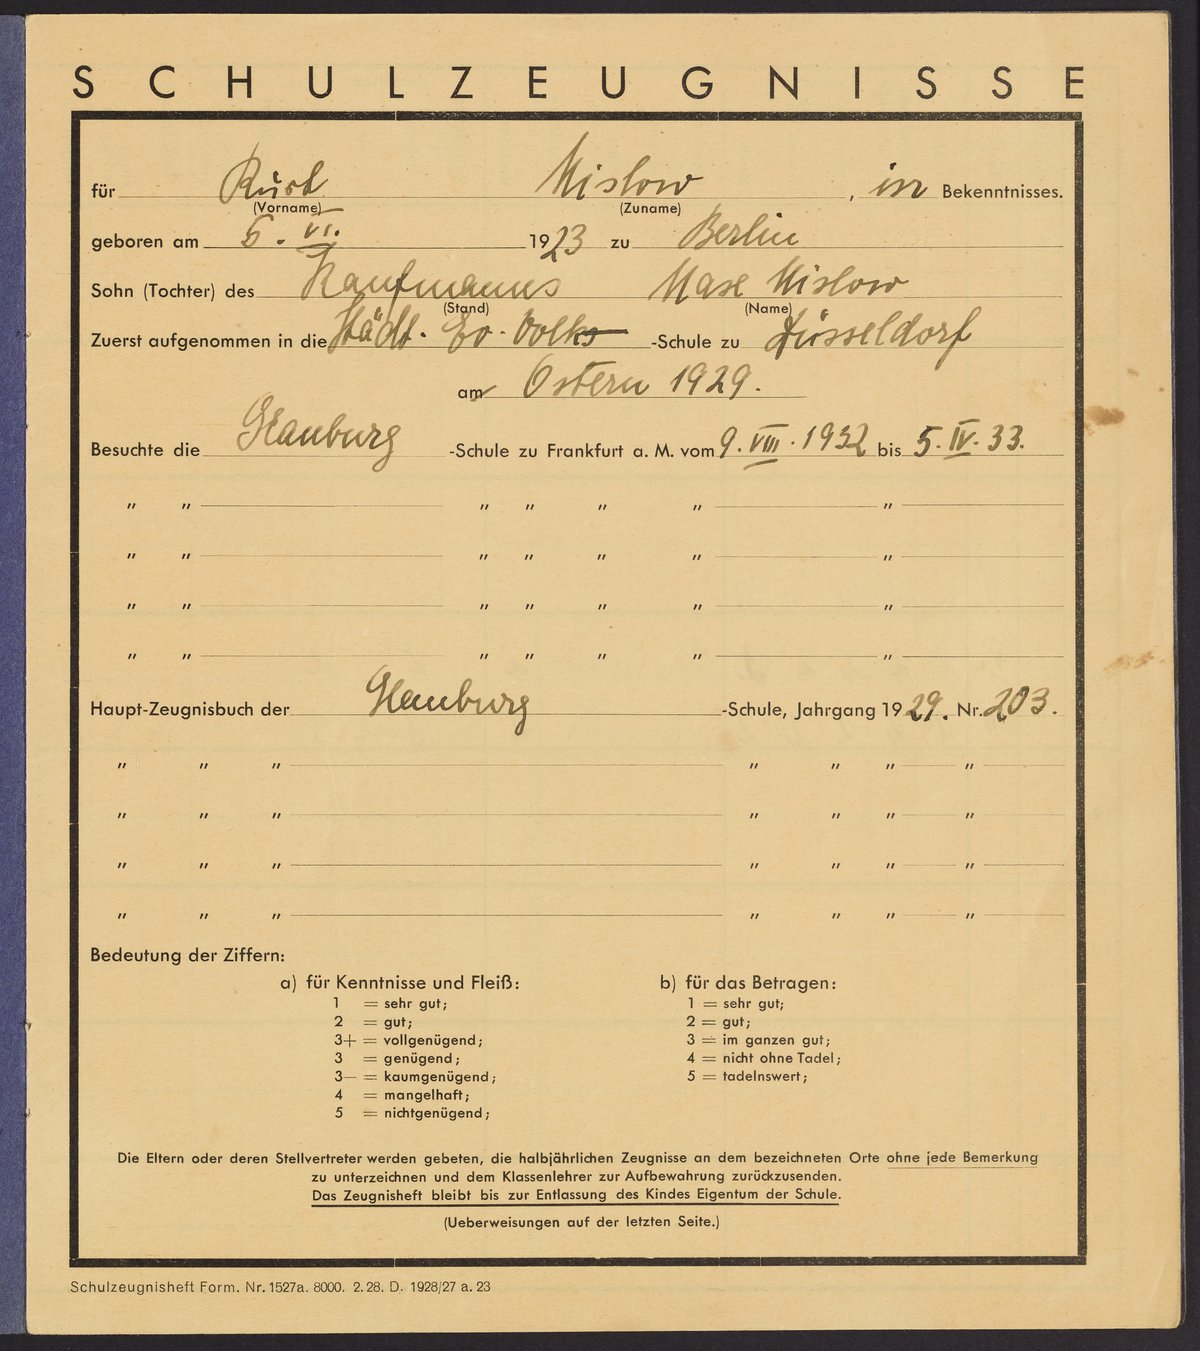 SCHULZEUGNISSE
für Kurt Mislow, isr Bekenntnisses.
(Vorname) (Zuname)
geboren am 5. VI. 1923 zu Berlin
Sohn (Tochter) des Kaufmanns Max Mislow
(Stand) (Name)
Zuerst aufgenommen in die Städt. Ev. Volks-Schule zu Düsseldorf
am Ostern 1929.
Besuchte die Glauburg-Schule zu Frankfurt a. M. vom 9. VIII. 1932 bis 5. IV. 33.
" " " " " " "
" " " " " " "
" " " " " " "
" " " " " " "
Haupt-Zeugnisbuch der Glauburg-Schule, Jahrgang 1929. Nr. 203.
" " " " " " "
" " " " " " "
" " " " " " "
" " " " " " "
Bedeutung der Ziffern:
a) für Kenntnisse und Fleiß:
1 = sehr gut;
2 = gut;
3+ = vollgenügend;
3 = genügend;
3— = kaumgenügend;
4 = mangelhaft;
5 = nichtgenügend;
b) für das Betragen:
1 = sehr gut;
2 = gut;
3 = im ganzen gut;
4 = nicht ohne Tadel;
5 = tadelnswert;
Die Eltern oder deren Stellvertreter werden gebeten, die halbjährlichen Zeugnisse an dem bezeichneten Orte ohne jede Bemerkung
zu unterzeichnen und dem Klassenlehrer zur Aufbewahrung zurückzusenden.
Das Zeugnisheft bleibt bis zur Entlassung des Kindes Eigentum der Schule.
(Ueberweisungen auf der letzten Seite.)
Schulzeugnisheft Form. Nr. 1527a. 8000. 2.28. D. 1928/27 a. 23